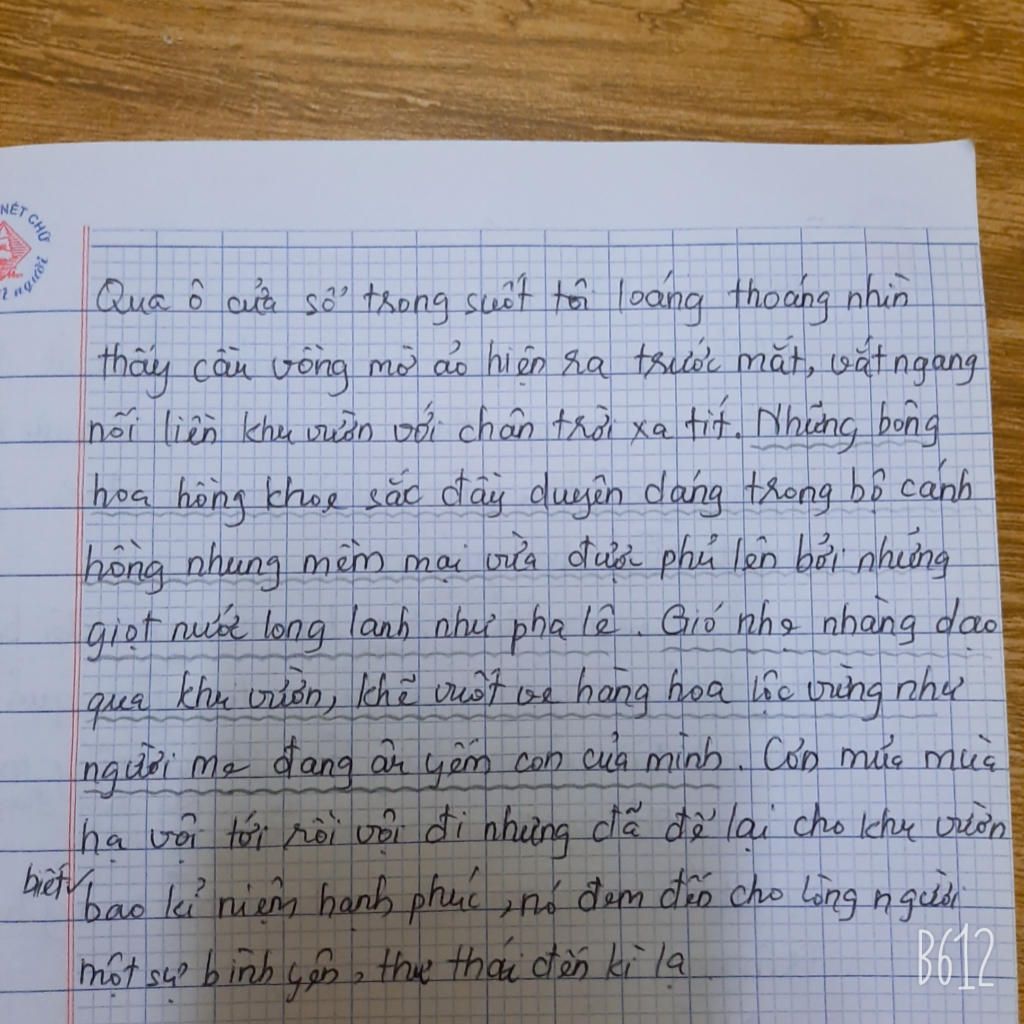 NÉT CHỮ
người
Qua ô cửa sổ trong suốt tôi loáng thoáng nhìn
thấy cầu vồng mờ ảo hiện ra trước mắt, vắt ngang
nối liền khu vườn với chân trời xa tít. Những bông
hoa hồng khoe sắc đầy duyên dáng trong bộ cánh
hồng nhung mềm mại vừa được phủ lên bởi những
giọt nước long lanh như pha lê. Gió nhẹ nhàng dạo
qua khu vườn, khẽ vuốt ve hàng hoa lộc vừng như
người mẹ đang âu yếm con của mình. Cơn mưa mùa
hạ vội tới rồi vội đi nhưng đã để lại cho khu vườn
biết
bao kỉ niệm hạnh phúc, nó đem đến cho lòng người
một sự bình yên, thư thái đến kì lạ
B612